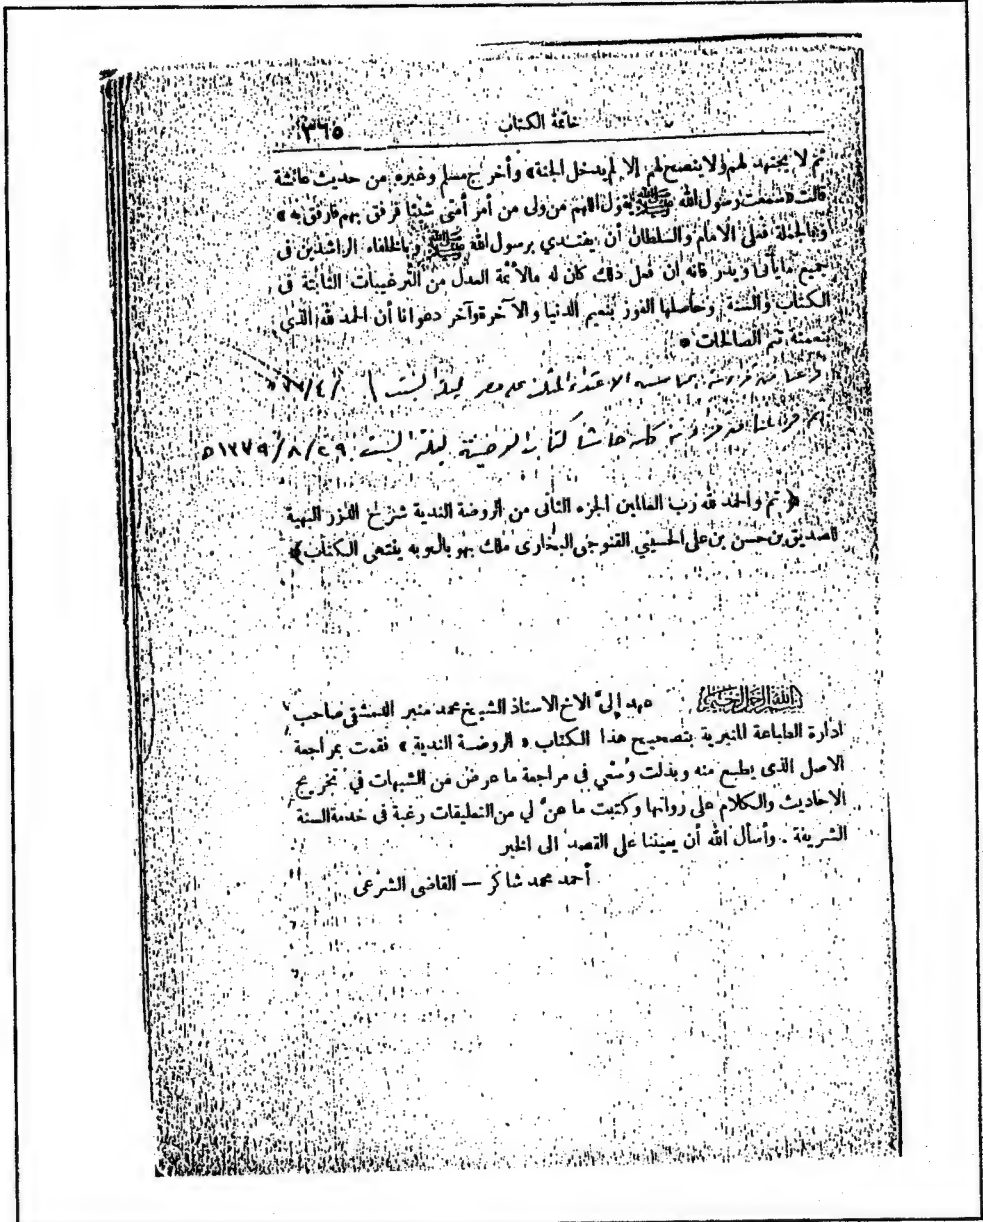 خاتمة الكتاب ٣٦٥
ثم لا يجتهد لهم ولا ينصح لهم إلا لم يدخل الجنة» وأخرج مسلم وغيره من حديث عائشة
قالت «سمعت رسول الله ﷺ يقول اللهم من ولى من أمر أمتى شيئا فرفق بهم فارفق به»
وبالجملة فعلى الامام والسلطان أن يقتدي برسول الله ﷺ وبالخلفاء الراشدين فى
جميع ما يأتى ويذر فانه ان فعل ذلك كان له مالأئمة العدل من الترغيبات الثابتة فى
الكتاب والسنة وحاصلها الفوز بنعيم الدنيا والآخرة وآخر دعوانا أن الحمد لله الذي
بنعمته تتم الصالحات *
على مصر ليلة السبت
ليلة السبت ٢٩/٨/١٣٧٩ه
﴿ تم والحمد لله رب العالمين الجزء الثانى من الروضة الندية شرح الدرر البهية
لصديق بن حسن بن على الحسيني القنوجى البخارى ملك بهوبال وبه ينتهى الكتاب ﴾
عهد إلىَّ الاخ الاستاذ الشيخ محمد منير الدمشقى صاحب
ادارة الطباعة المنيرية بتصحيح هذا الكتاب « الروضة الندية » فقمت بمراجعة
الاصل الذى يطبع منه وبذلت وُسْعي فى مراجعة ما عرض من الشبهات في تخريج
الاحاديث والكلام على رواتها وكتبت ما عنَّ لي من التعليقات رغبة فى خدمة السنة
الشريفة . وأسأل الله أن يعيننا على القصد الى الخير
أحمد محمد شاكر — القاضى الشرعى